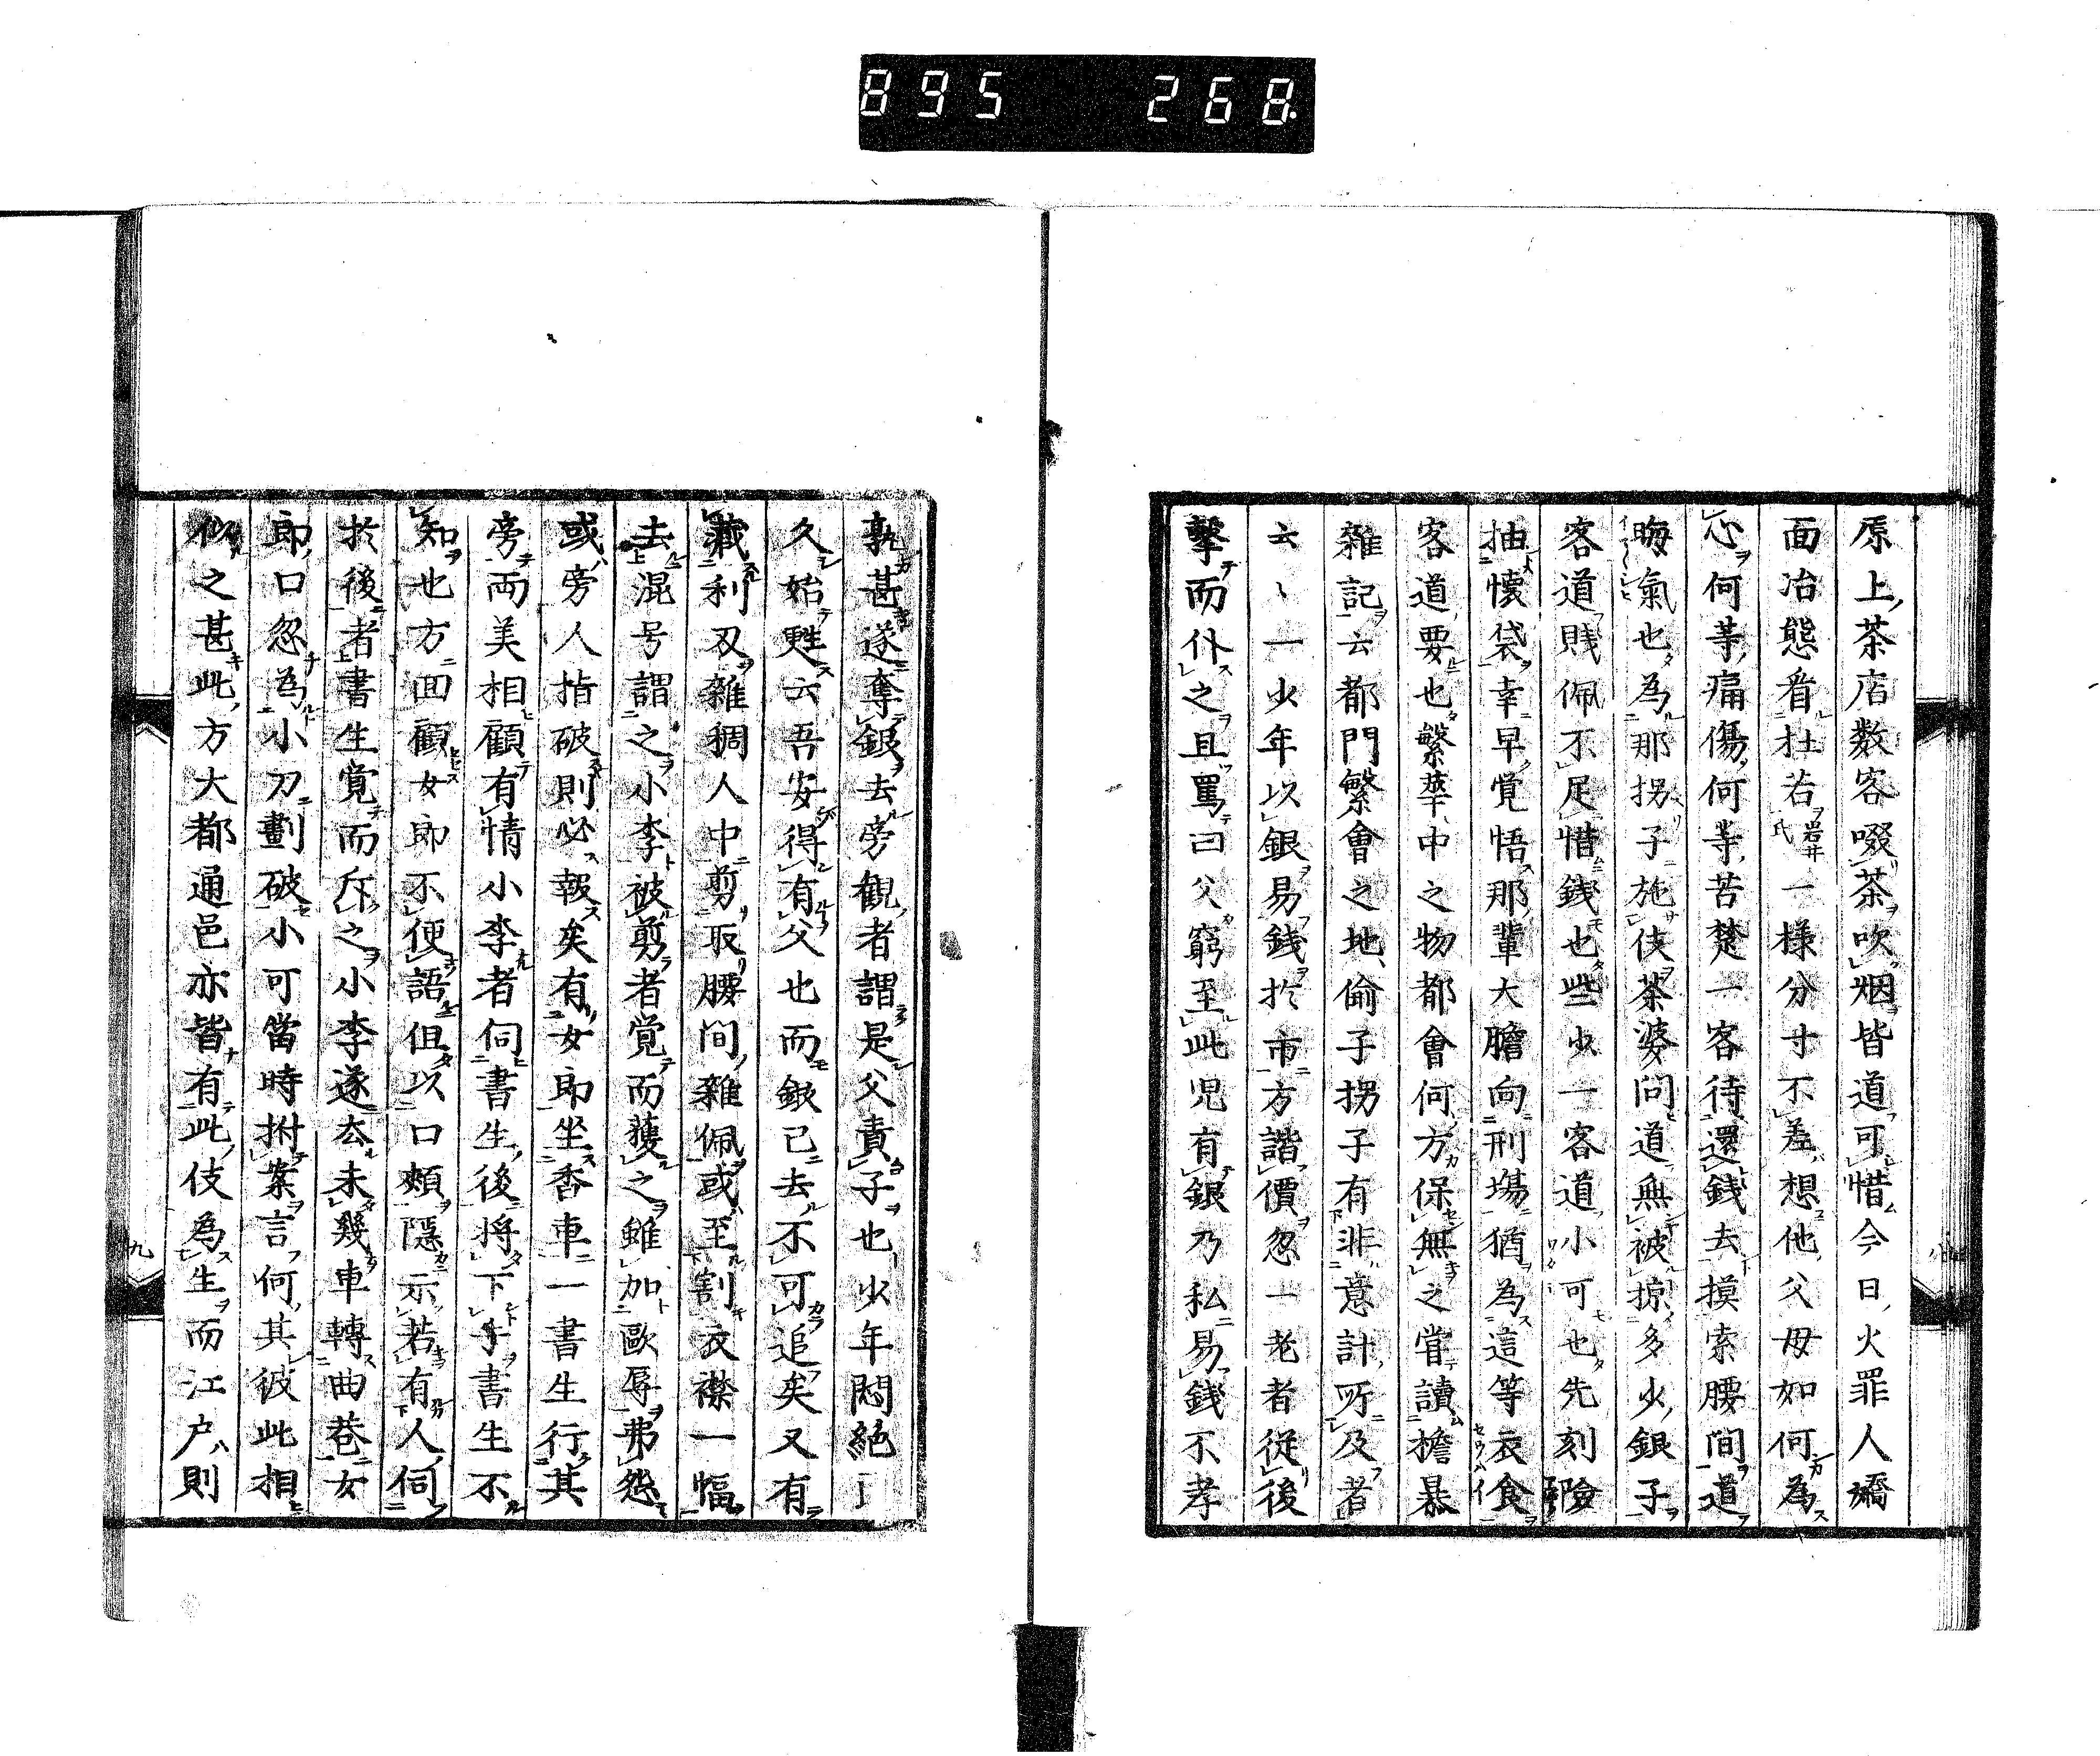 895 268
原上茶店数客啜茶吹烟皆道可惜今日火罪人嬌
面冶態看杜若岩井氏一様分寸不差想他父母如何為
心何等痛傷何等苦楚一客待還錢去摸索腰間道
晦氣也為那拐子施伎茶婆問道無被掠多少銀子
客道賎佩不足惜錢也些少一客道小可也先刻險
抽懐袋幸早覚悟那輩大膽向刑場猶為這等衣食
客道要也繁華中之物都會何方保無之甞讀檐暴
雜記云都門繁會之地偷子拐子有非意計所及者
云〻一少年以銀易錢於市方諧價忽一老者従後
擊而仆之且罵曰父窮至此児有銀乃私易錢不孝
孰甚遂奪銀去旁観者謂是父責子也少年悶絕
久始甦云吾安得有父也而銀已去不可追矣又有
藏利刃雜稠人中剪取腰间雜佩或至割衣襟一幅
去混号謂之小李被剪者覚而獲之雖加歐辱弗怨
或旁人指破則必報矣有女郎坐香車一書生行其
旁両美相顧有情小李者伺書生後将下手書生不
知也方囬顧女郎不便語但以口頰隠示若有人伺
於後者書生覚而斥之小李遂去未幾車轉曲巷女
郎口忽為小刀劃破小可當時拊案言何其彼此相
似之甚此方大都通邑亦皆有此伎為生而江户則
八
九